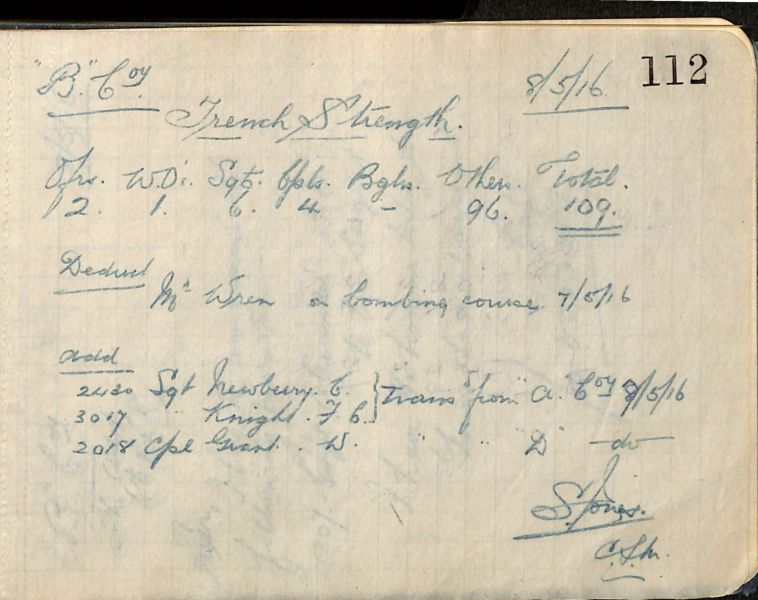 "B" Coy. 8/5/16 112
Trench Strength.
Ofrs. W.O's. Sgts. Cpls. Bglrs. Others. Total.
2. 1. 6. 4 - 96. 109.
Deduct
Mr Wren on bombing course 7/5/16
add
2430 Sgt Newbury. C. } trans from "A" Coy 8/5/16
3017 " Knight. F C.
2018 Cpl Grant. W. " " "D" -do-
S. Jones.
C.S.M.